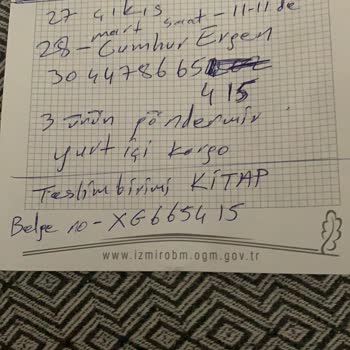 27 çıkış
mart saat - 11-11 de
28 - Cumhur Ergen
304478665
415
3 ürün göndermiş
yurt içi kargo
Teslimbirimi KİTAP
Belge no - XG665415
www.izmirobm.ogm.gov.tr